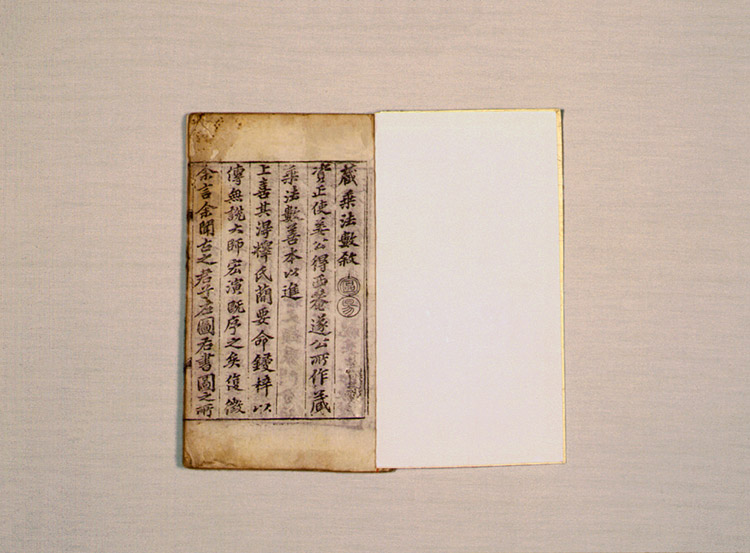 藏乘法數敍
資正使姜公得西菴遂公所作藏
乘法數善本以進
上喜其得釋氏蕳要命鋟梓以
傳無說大師宏演旣序之矣復徵
余言余聞古之君子左圖右書圖之所